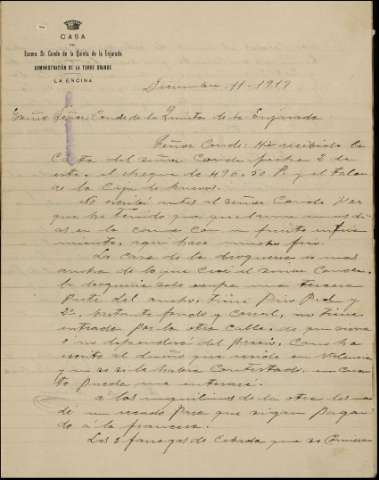 CASA
DEL
Excmo. Sr. Conde de la Quinta de la Enjarada
ADMINISTRACIÓN DE LA TORRE GRANDE
LA ENCINA
Diciembre 11-1919
Exmo Señor Conde de la Quinta de la Enjarada
Señor Conde: He recibido la
Carta del señor Conde fecha 2 de
este, el cheque de 490.50 P. y el talon
de la Caja de
No escribi antes al señor Conde por
que he tenido que quedarme unos di
as en la cama con un fuerte enfria
miento, aqui hace mucho frio.
La Casa de la drogueria es mas
ancha de lo que cree el señor Conde,
la drogueria solo ocupa una tercera
parte del ancho, tiene piso Pral y
2º, bastante fondo y corral, no tiene
entrada por la otra calle. de que viva
o no dependerá del precio, Como he
escrito al dueño que reside en Valencia
y no se le habra contestado, en cuan
to pueda me enteraré.
a los inquilinos de la otra les man
dé un recado para que sigan pagan
do a la francesa.
Las 2 fanegas de Cebada que se